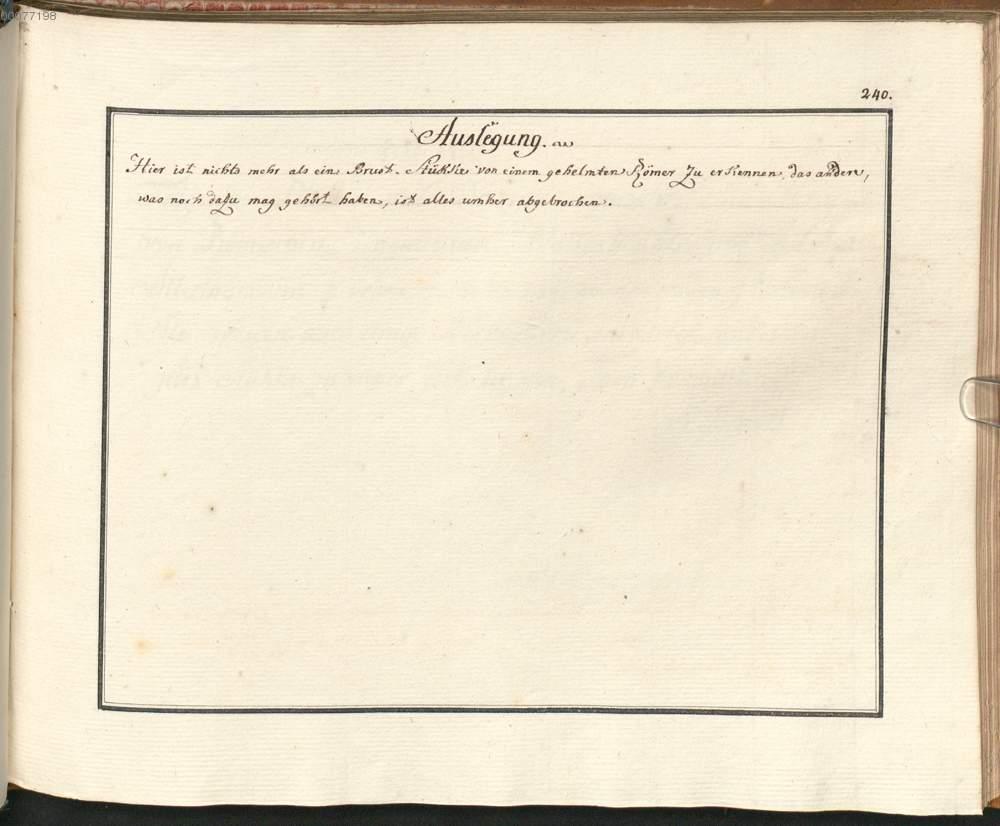 00077198
240.
Auslegung.
Hier ist nichts mehr als ein Brust-Stükke von einem gehelmten Römer zu erkennen, das andere,
was noch dazu mag gehört haben, ist alles umher abgebrochen.